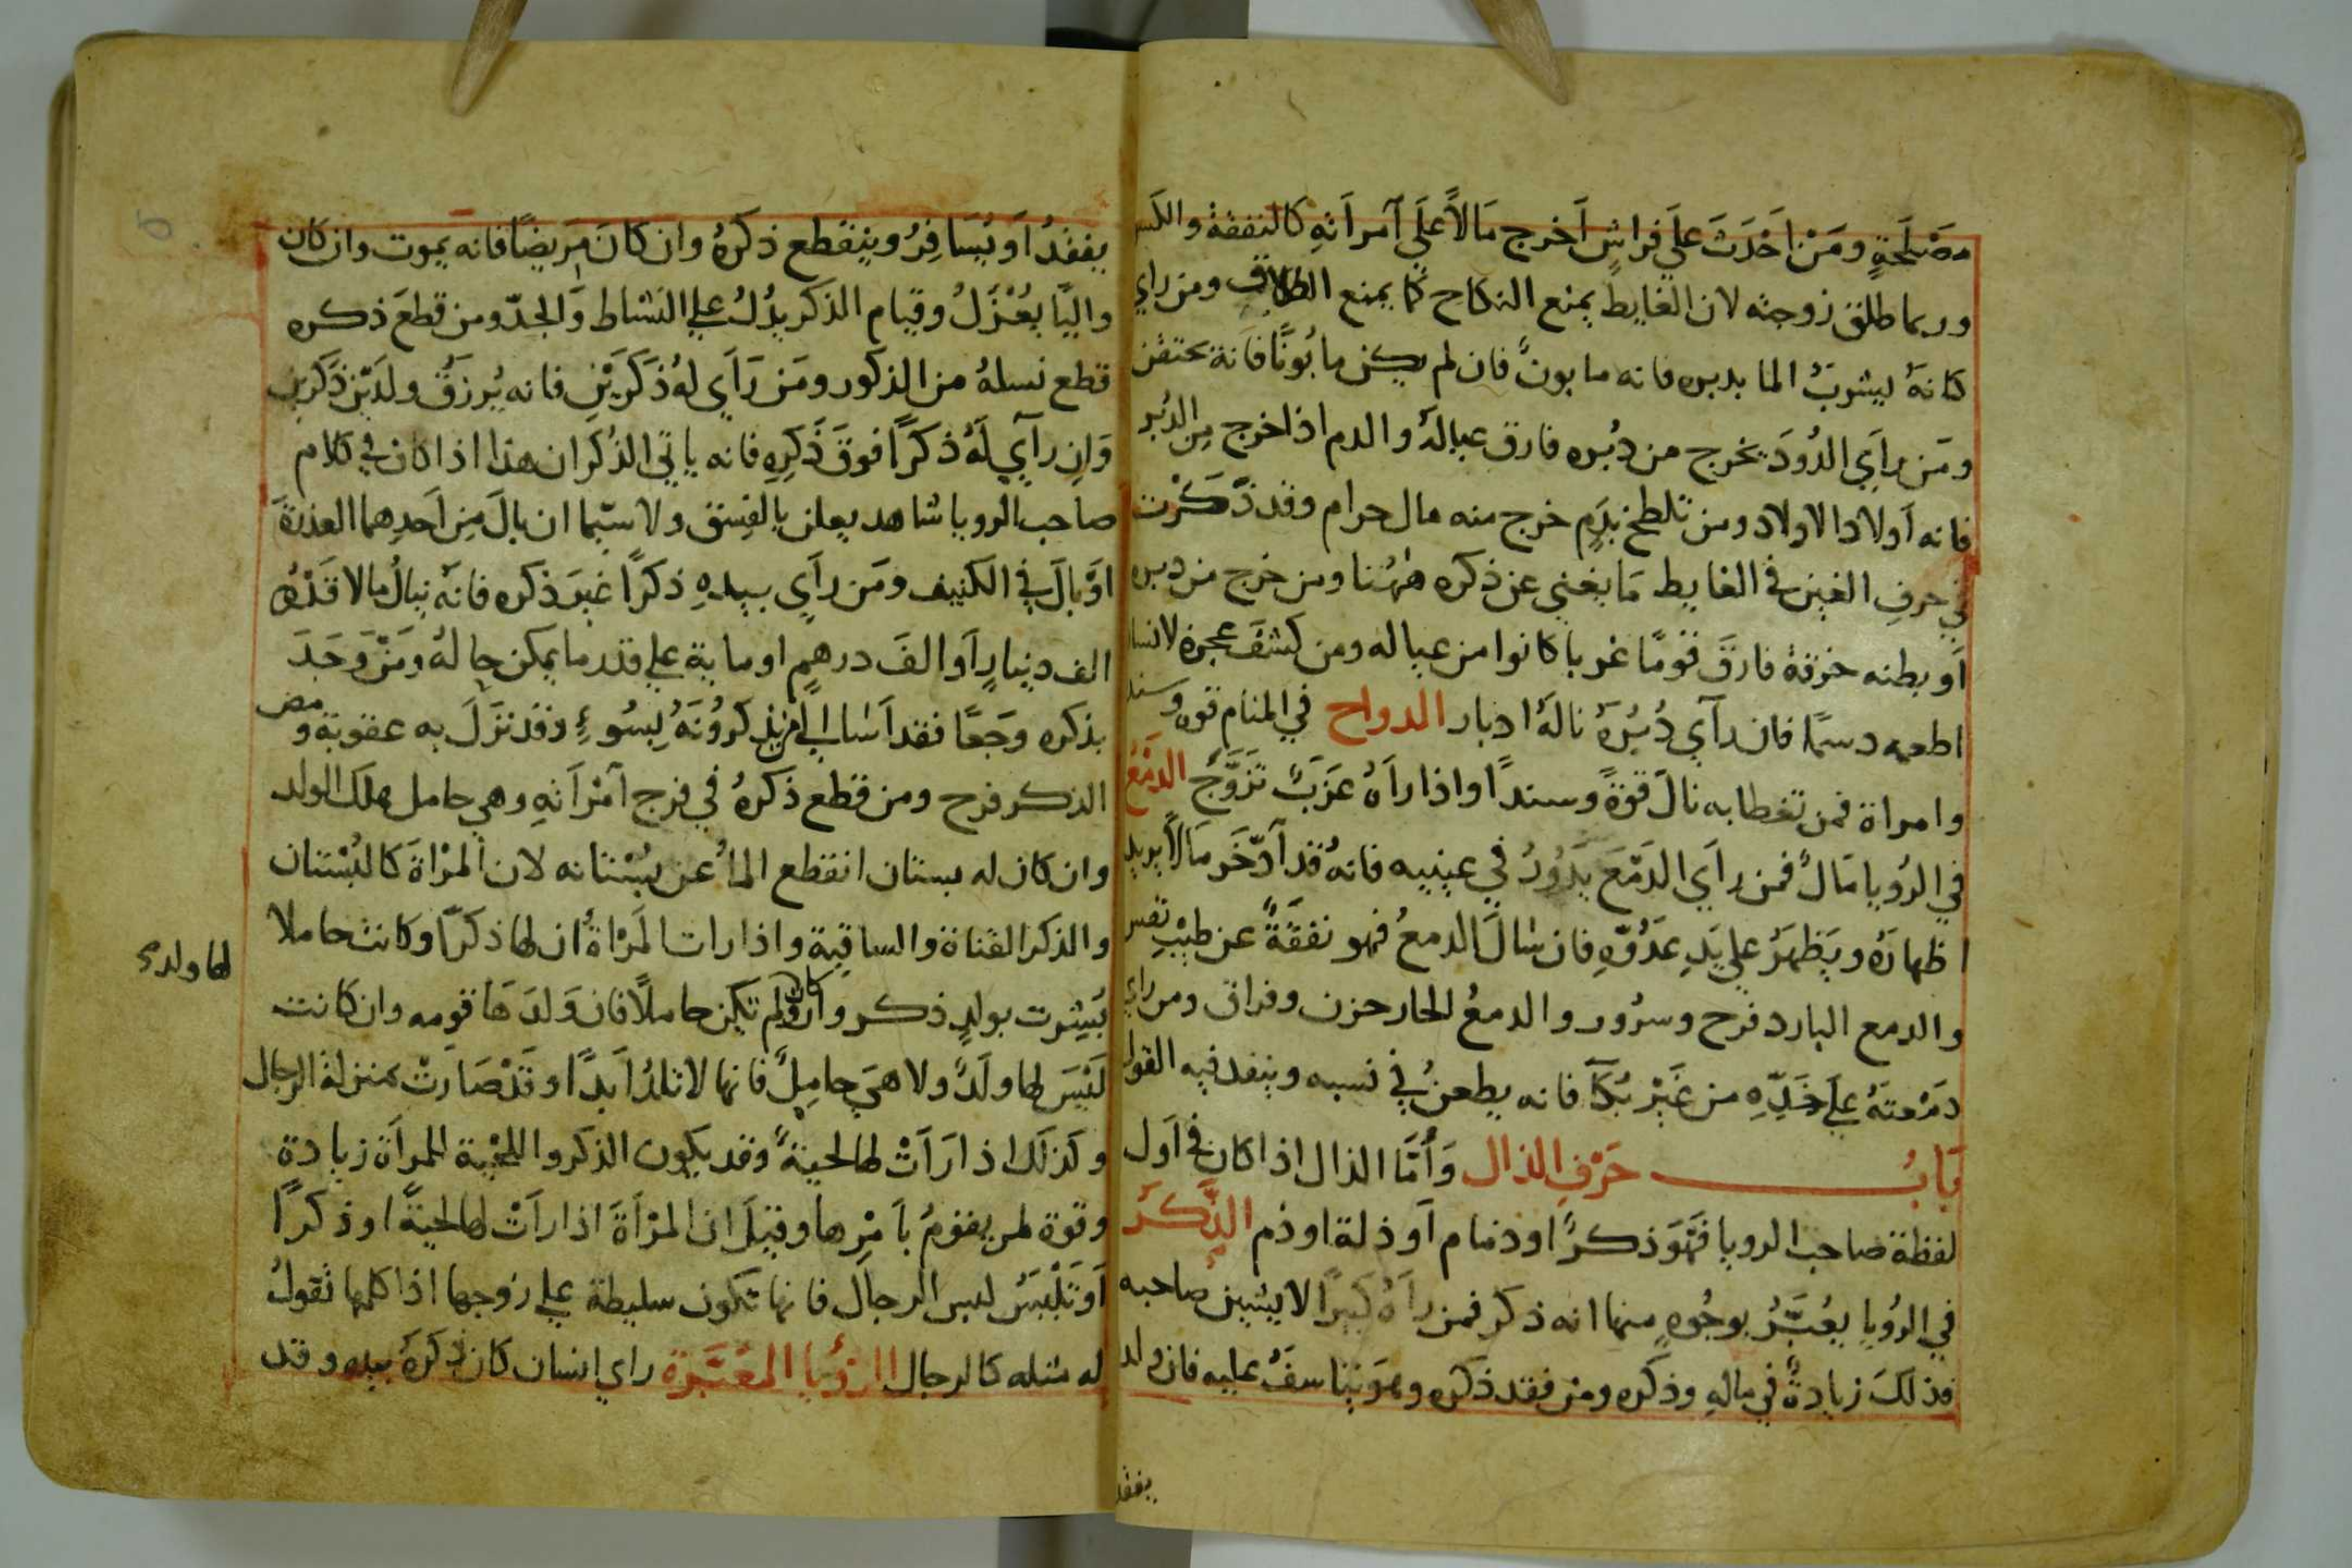 مصلحةٍ ومَنْ احَدَثَ علي فراشٍ اَخرج مَالاً علَي آمراَتهِ كالنفقة والكس
وربما طلق زوجته لان الغايط يمنع النكاح كما يمنع الطلاق ومن راي
كانهُ يشربُ الما بدبره فانه مابونٌ فان لم يكن مابُونًا فانة يحتقن
ومَن راَي الدُودَ يخرج من دُبُره فارق عيالهُ والدم اذا خرج مِن الدُبر
فانه اَولاد الاولاد ومن تلطخ بدَمٍ خرج منه مال حرام وقد ذَكَرْت
في حرفِ الغين في الغايط مَا يغني عن ذكره هٰهُنا ومن خرج من دبره
اَو بطنه خرقة فارقَ قومًا غربا كانوا من عياله ومن كشفَ عجزهُ لانسان
اطعمه دسمًا فان راَي دُبُرَهُ نالهُ ادبار الدواح في المنام قوه وسند
وامراة فمن تغطا به نالَ قوةً وسندًا واذا راَهُ عَزَبٌ تَزَوَّجَ الدَمْعُ
في الرُويا مَالٌ فمن راَي الدَمْعَ يَدُورُ في عينيه فانهُ قد اَدّخَر مَالاً يريد
اظهارَهُ ويَظهَرُ علي يَدِ عدُوّهِ فان سَالَ الدمعُ فهو نفقَةً عن طيْبِ نفس
والدمع البارد فرح وسرُور والدمعُ الحار حزن وفراق ومن راي
دَمْعتَهُ علَي خَدِّهِ من غَيْرِ بُكآ فانه يطعنُ في نسبه وينفد فيه القول
بَابُ حَرْفِ الذال وَاَمَّا الذال اذا كان في اَول
لفظة صاحب الرويا فَهَوَ ذكرٌ او ذمام اَو ذلة او ذم الذَّكَرُ
في الرُويا يعُبَّرُ بوجُوهٍ منها انه ذكر فمن راَهُ كبيرًا لا يشين صاحبه
فذلكَ زيادةٌ في مالهِ وذكره ومن فقد ذكره وهوَ يتاسفُ عليه فان ولد
يفقد
يفقدُ اَو يُسَافِرُ وينقطع ذكرهُ وان كانَ مَريضًا فانه يموت وان كان
واليًا يعُزلُ وقيام الذكر يدُلُ علي النشاط وَالجدّ ومن قطَعَ ذكره
قطع نسلهُ من الذكور ومَن رَاَي لهُ ذكرَيْنِ فانه يُرزقُ ولدَيْن ذكرين
وَان راَي لَهُ ذكرًا فوقَ ذَكرِهِ فانه ياتي الذُكران هذا اذا كان في كلام
صاحب الرويا شاهد يعلن بالفِسق ولا سيّما ان بالَ مِن اَحدِهما العذرة
اوْ بالَ في الكنيف ومَن راَي بيدهِ ذكرًا غيرَ ذكره فانهُ ينالُ مالا قَدْرهُ
الف دينارٍ اَو الفَ درهمٍ او ماية علي قدر ما يمكن حالهُ ومَنْ وَجَدَ
بذكره وجَعًا فقد اَسَا الي من يذكرُونَهُ بِسُوءٍ وقد نزَلَ به عقوبة ومص
الذكر فرح ومن قطع ذكرهُ في فرج آمْراَتهِ وهي حامل هلك الولد
وان كان له بستان انقطع الماُ عن بُسْتانه لان المرْاةَ كالبُسْتان
والذكر القناة والساقية واذا رات المَرْاةُ ان لها ذكرًا وكانت حاملا
بُشِرت بولدٍ ذكر وان كان لها ولد ولم تكن حاملاً فان وَلدَهَا قومه وان كانت
لَيْسَ لها ولَدٌ ولا هيَ حامِلٌ فانها لا تلدُ اَبدًا وقَدْ صَارتْ بمنزلة الرجال
وكذلك اذا رَاَتْ لها لحيةً وقد يكون الذكر واللحْية للمراَة زيادة
وقوة لمن يقومُ باَمْرِها وقيلَ ان المرْاَةَ اذا راَتْ لها لحيةً او ذكرًا
اَو تَلْبَسُ لبس الرجال فانها تكون سليطة علي زوجها اذا كلمها تقولُ
له مثله كالرجال الرُؤيا المُعَبَّرَة راي انسان كان ذكرهُ بيده وقد